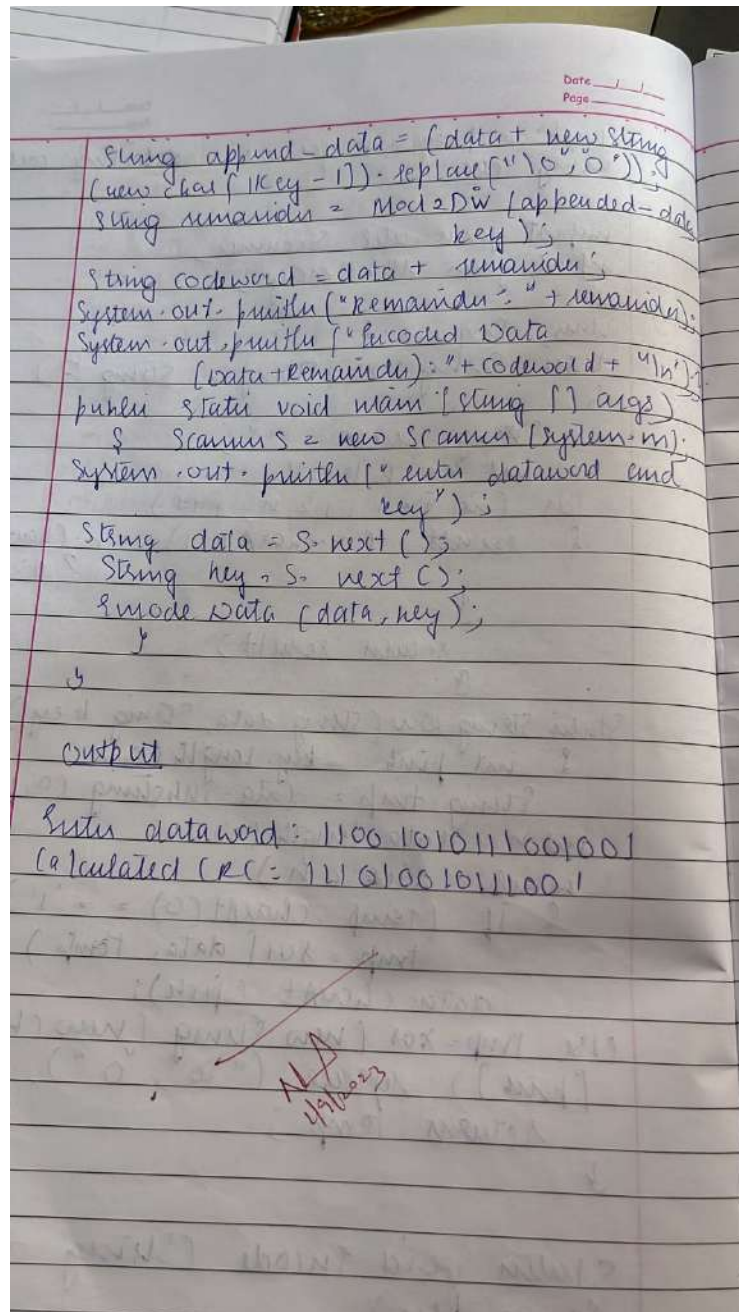 Date
Page
String append-data = (data + new String
(new char [lkey - 1]). replace ("\0", "0"));
String remainder = Mod2DW (appended-data
key);
String codeword = data + remainder;
System.out.println ("Remainder: " + remainder);
System.out.println ("Encoded Data
(Data+Remainder): " + codeword + "\n");
public static void main (String [] args)
{ Scanner S = new Scanner (System.in);
System.out.println (" enter dataword and
key");
String data = S. next ();
String key = S. next ();
Encode Data (data, key);
}
}
Output
Enter dataword: 11001010111001001
Calculated CRC = 111010010111001